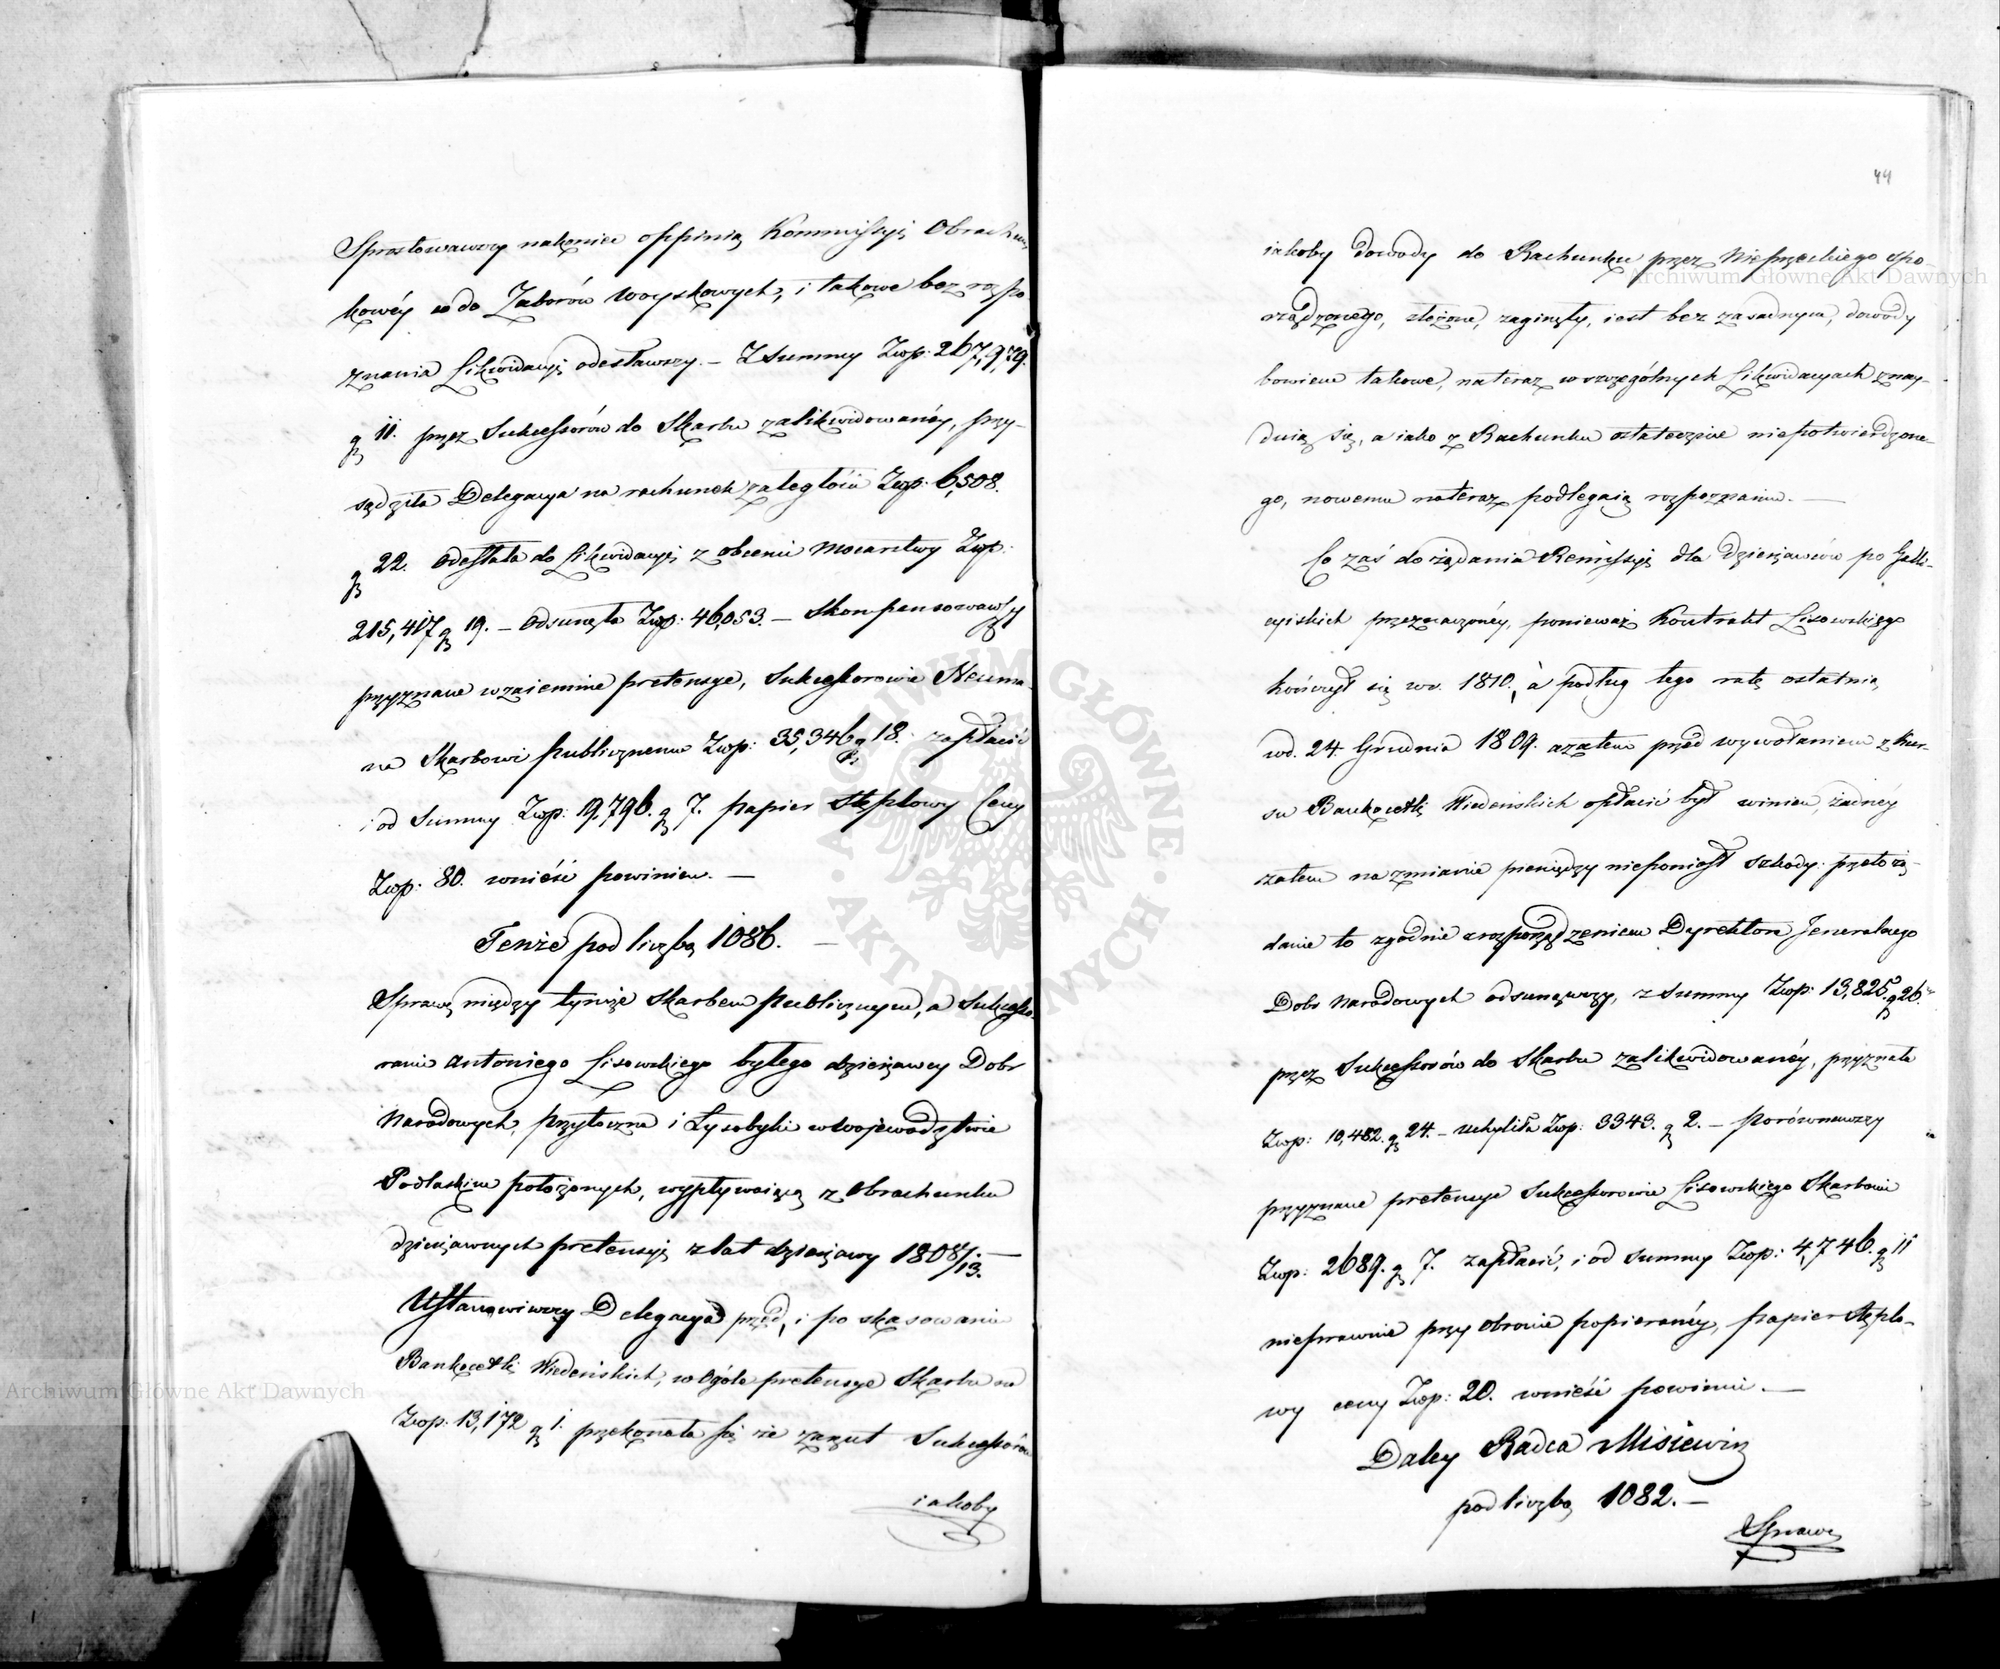 Sprostowawszy nakoniec oppinią Kommissyi Obrachun
kowéy co do Zaborów woyskowych, i takowe bez rozpo-
znania Likwidacyi odesławszy. – Z Summy Złłp: 267,979.
g 11. przez Sukcessorów do Skarbu zalikwidowanéy, przy-
sądziła Delegacya na rachunek zaległości Złłp: 6,508.
g 22. odesłała do Likwidacyi z obcemi Mocarstwy Złłp:
215,417 g 19. – odsunęła Złłp: 46,053. – Skompensowawszy
przyznane wzaiemne pretensye, Sukcessorowie Neuma-
na Skarbowi Publicznemu Złłp: 35,346 g 18. zapłacić
i od Summy Złłp: 19,796. g 7. papier Stęplowy Ceny
Złłp: 80. wnieść powinien. –
Tenże pod liczbą 1086. –
Sprawę między tymże Skarbem Publicznym, a Sukcesso-
rami Antoniego Lisowskiego byłego dzierżawcy Dobr
Narodowych, Przytoczna i Łysobyki w Województwie
Podlaskim położonych, wypływaiącą z obrachunku
dzierżawnych pretensyi z lat dzierżawy 1808/13. –
Ustanowiwszy Delegacya przed, i po skasowaniu
Bankocetli Wiedeńskich, w ogóle pretensye Skarbu na
Złłp: 13,172 g 1. przekonała się że zarzut Sukcessorów
iakoby
44
iakoby dowody do Rachunku przez Nieprzeckiego spo-
rządzonego, złożone, zaginęły, iest bez zasadnym, dowody
bowiem takowe, na teraz w szczególnych Likwidacyach znay-
duią się, a iako z Rachunku ostatecznie niepotwierdzone-
go, nowemu na teraz podlegaią rozpoznaniu. –
Co zaś do żądania Remissyi dla dzierżawców po Galli-
cyiskich przeznaczonéy, ponieważ Kontrakt Lisowskiego
kończył się w r. 1810., a podług tego ratę ostatnią
w d. 24. Grudnia 1809. a zatem przed wywołaniem z kur-
su Bankocetli Wiedeńskich opłacić był winien, żadnéy
zatem na zmianie pieniędzy nieponiosł szkody. przeto żą-
danie to zgodnie z rozporządzeniem Dyrektora Jeneralnego
Dobr Narodowych odsunąwszy, z Summy Złłp: 13,825. g 26.
przez Sukcessorów do Skarbu zalikwidowanéy, przyznała
Złłp: 10,482. g 24. – uchyliła Złłp: 3343. g 2. – Porównawszy
przyznane pretensye Sukcessorowie Lisowskiego Skarbowi
Złłp: 2689. g 7. zapłacić, i od Summy Złłp: 4,746. g 11
nieprawnie przy obronie popieranéy, papier Stęplo-
wy ceny Złłp: 20. wnieść powinni. –
Daley Radca Misiewicz
pod liczbą 1082. –
Sprawę
Archiwum Główne Akt Dawnych
Archiwum Główne Akt Dawnych
ARCHIWUM GŁÓWNE · AKT DAWNYCH ·